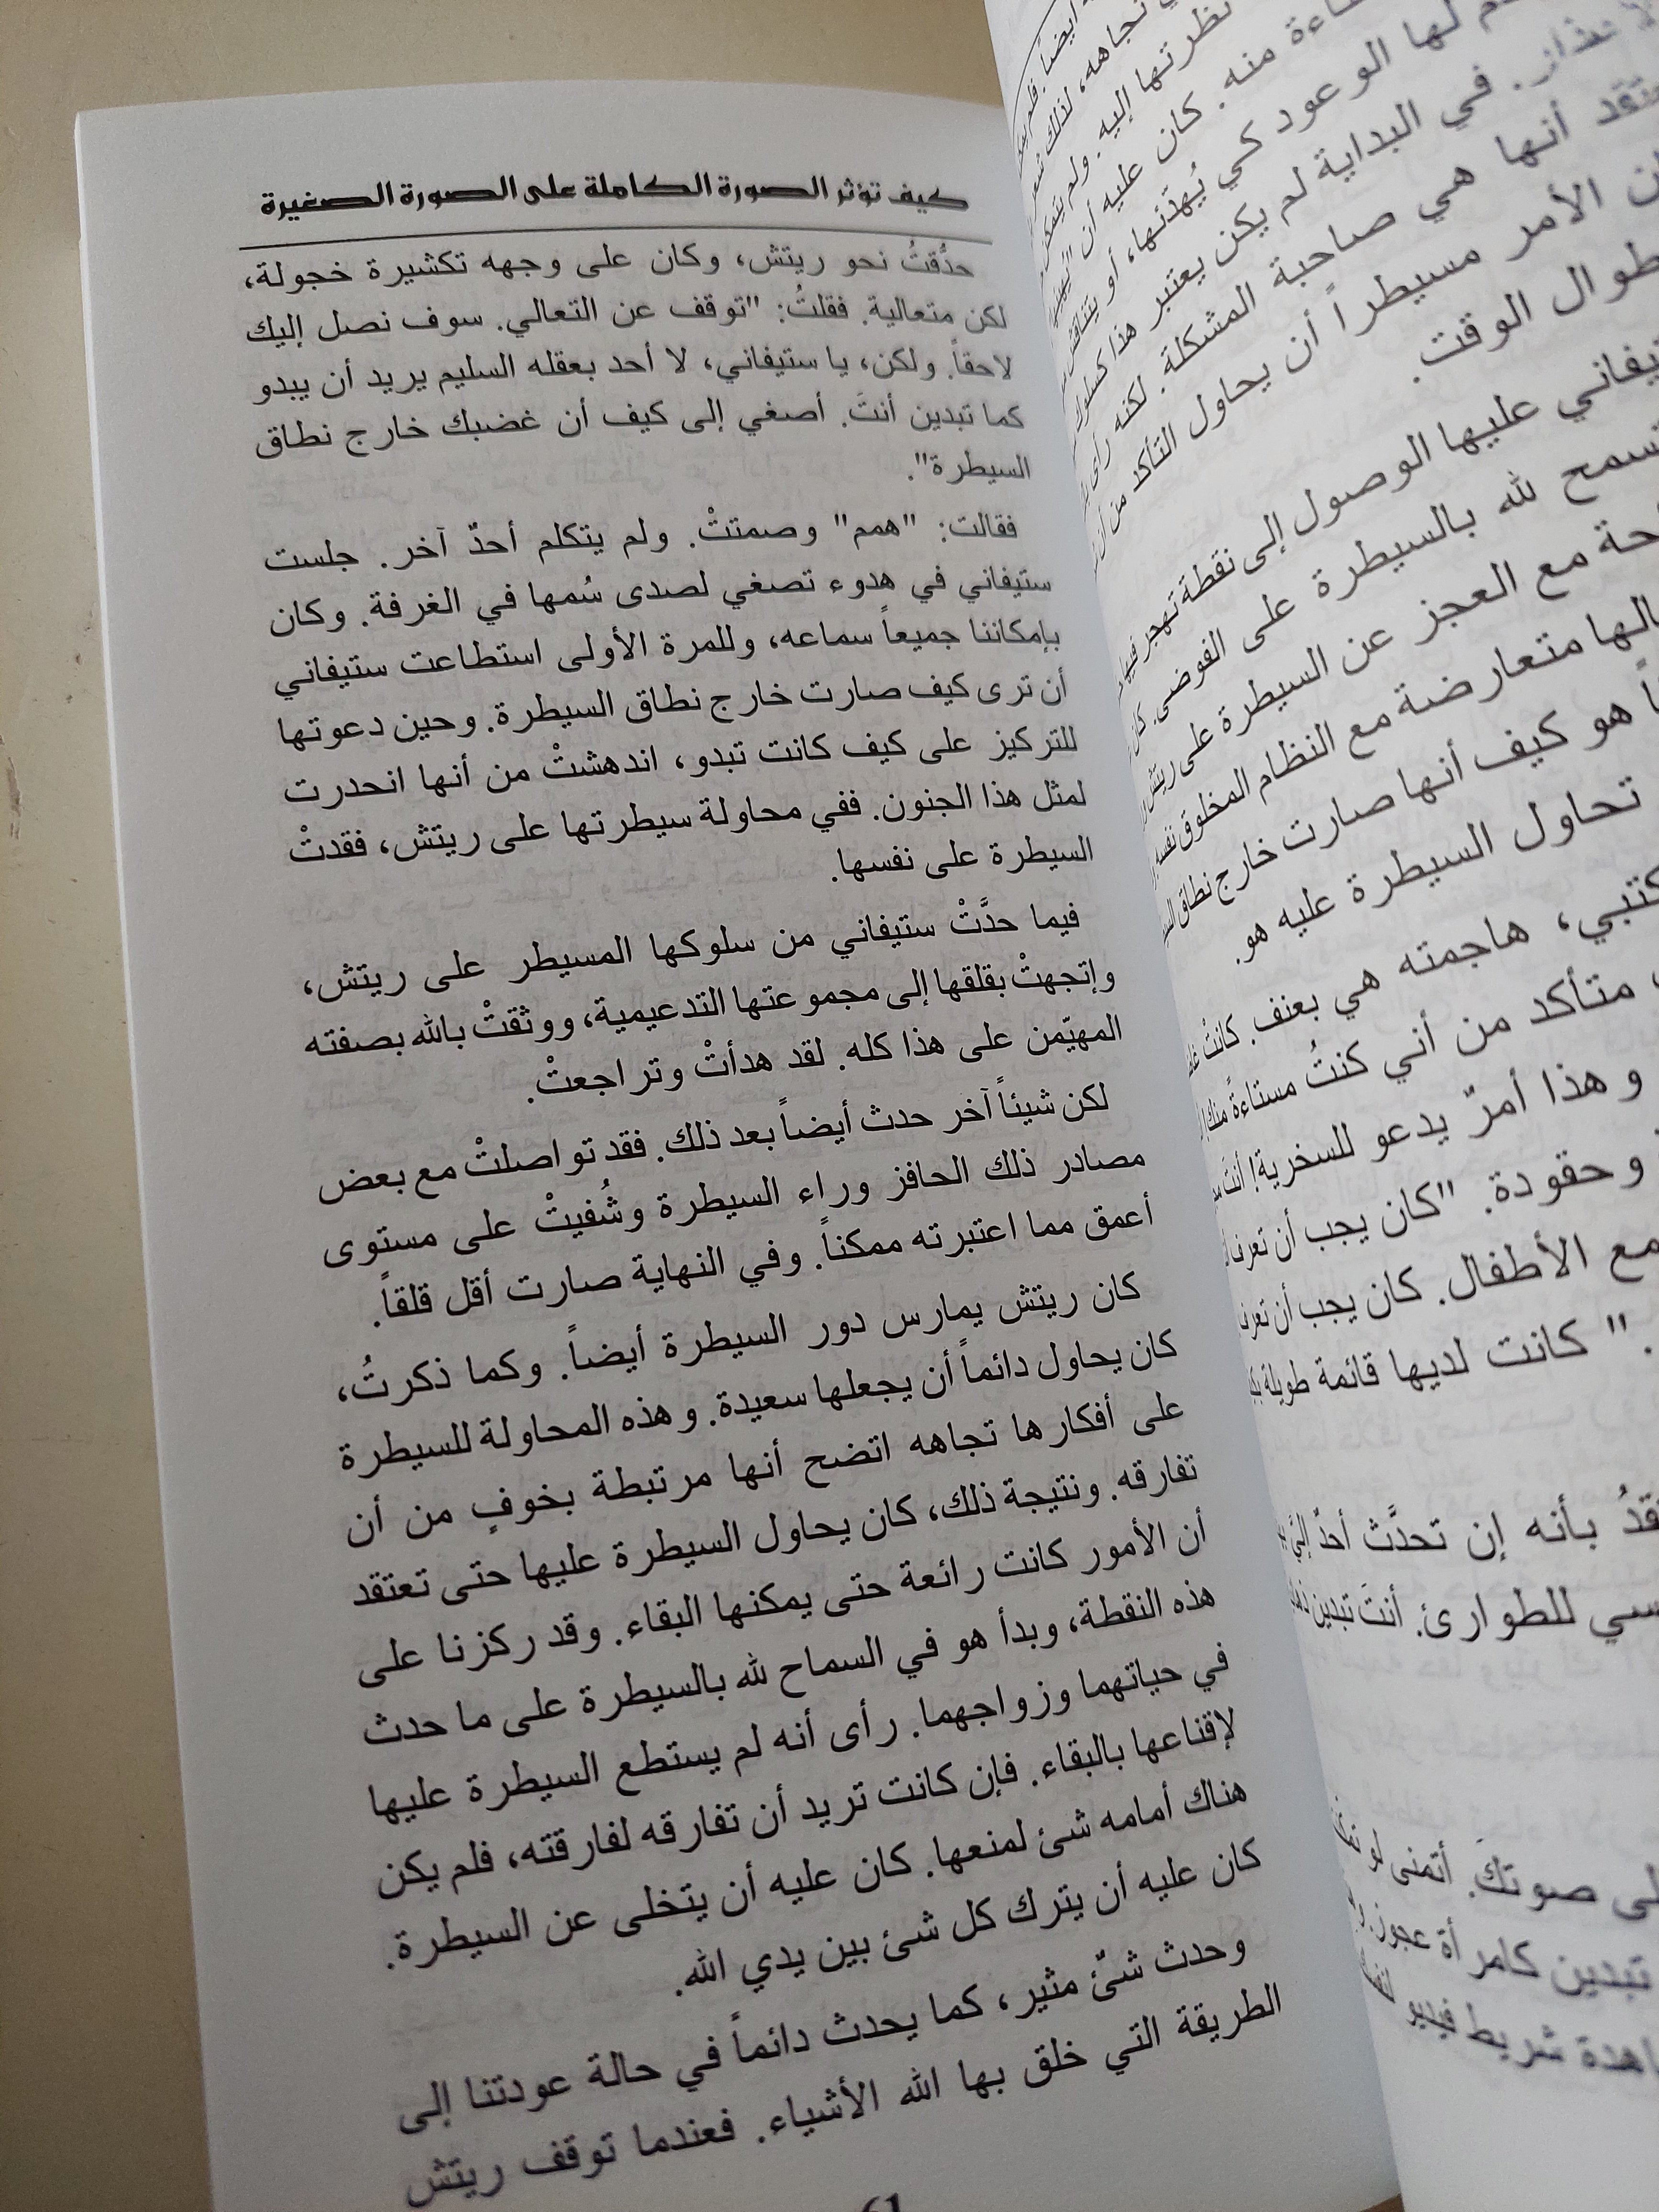 كيف تؤثر الصورة الكاملة على الصورة الصغيرة
حدَّقتُ نحو ريتش، وكان على وجهه تكشيرة خجولة،
لكن متعالية. فقلتُ: "توقف عن التعالي. سوف نصل إليك
لاحقاً. ولكن، يا ستيفاني، لا أحد بعقله السليم يريد أن يبدو
كما تبدين أنتَ. أصغي إلى كيف أن غضبك خارج نطاق
السيطرة".
فقالت: "همم" وصمتتْ. ولم يتكلم أحدٌ آخر. جلست
ستيفاني في هدوء تصغي لصدى سُمها في الغرفة. وكان
بإمكاننا جميعاً سماعه، وللمرة الأولى استطاعت ستيفاني
أن ترى كيف صارت خارج نطاق السيطرة. وحين دعوتها
للتركيز على كيف كانت تبدو، اندهشتْ من أنها انحدرت
لمثل هذا الجنون. ففي محاولة سيطرتها على ريتش، فقدتْ
السيطرة على نفسها.
فيما حدَّتْ ستيفاني من سلوكها المسيطر على ريتش،
وإتجهتْ بقلقها إلى مجموعتها التدعيمية، ووثقتْ بالله بصفته
المهيّمن على هذا كله. لقد هدأتْ وتراجعتْ.
لكن شيئاً آخر حدث أيضاً بعد ذلك. فقد تواصلتْ مع بعض
مصادر ذلك الحافز وراء السيطرة وشُفيتْ على مستوى
أعمق مما اعتبرته ممكناً. وفي النهاية صارت أقل قلقاً.
كان ريتش يمارس دور السيطرة أيضاً. وكما ذكرتُ،
كان يحاول دائماً أن يجعلها سعيدة. وهذه المحاولة للسيطرة
على أفكارها تجاهه اتضح أنها مرتبطة بخوفٍ من أن
تفارقه. ونتيجة ذلك، كان يحاول السيطرة عليها حتى تعتقد
أن الأمور كانت رائعة حتى يمكنها البقاء. وقد ركزنا على
هذه النقطة، وبدأ هو في السماح لله بالسيطرة على ما حدث
في حياتهما وزواجهما. رأى أنه لم يستطع السيطرة عليها
لإقناعها بالبقاء. فإن كانت تريد أن تفارقه لفارقته، فلم يكن
هناك أمامه شئ لمنعها. كان عليه أن يتخلى عن السيطرة.
كان عليه أن يترك كل شئ بين يدي الله.
وحدث شئٌ مثير، كما يحدث دائماً في حالة عودتنا إلى
الطريقة التي خلق بها الله الأشياء. فعندما توقف ريتش
نظرتها إليه. ولم يتمكن
منه. كان عليه أن
لها الوعود كي يُهدّئها، أو
في البداية لم يكن يعتبر هذا
أنها هي صاحبة المشكلة. لكنه رأى
الأمر مسيطراً أن يحاول التأكد من أن
طوال الوقت.
عليها الوصول إلى نقطة تهجر فيها
لله بالسيطرة على الفوضى. كان
مع العجز عن السيطرة على ريتش
متعارضة مع النظام المخلوق
هو كيف أنها صارت خارج نطاق
تحاول السيطرة عليه هو.
هاجمته هي بعنف. كانتْ
متأكد من أني كنتُ مستاءة
وهذا أمرٌ يدعو للسخرية! أنتَ
وحقودة. "كان يجب أن تعرف
مع الأطفال. كان يجب أن تعرف
." كانت لديها قائمة طويلة
بأنه إن تحدَّث أحدٌ إليَّ
للطوارئ. أنتَ تبدين
صوتكَ. أتمنى لو
تبدين كامرأة عجوز.
شريط فيديو
61